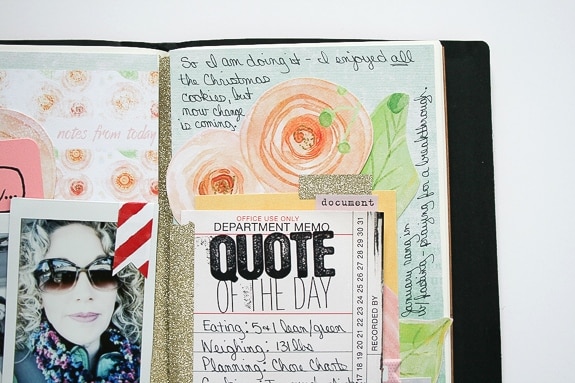 notes from today
So I am doing it - I enjoyed all
the Christmas
cookies, but
now change
is coming.
January rang in
w/ fasting - praying for a breakthrough.
document
OFFICE USE ONLY
DEPARTMENT MEMO
QUOTE
OF THE DAY
Eating: 5+1 lean/green
Weighing: 131 lbs
Planning: Chore Charts
RECORDED BY
18 19 20 21 22 23 24 25 26 27 28 29 30 31